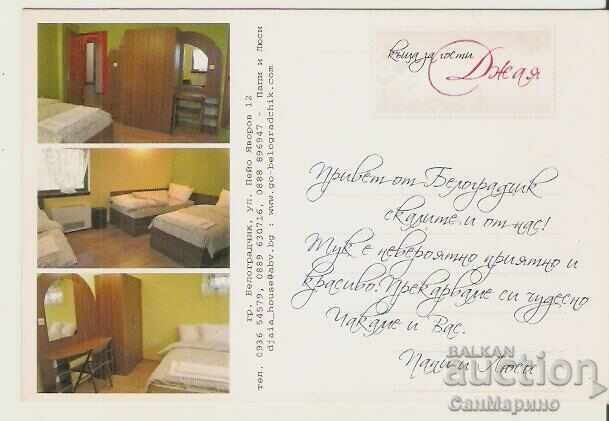 къща за гости
Джая
Привет от Белоградчик
скалите и от нас!
Тук е невероятно приятно и
красиво. Прекарваме си чудесно
Чакаме и Вас.
Папи и Люси
гр. Белоградчик, ул. Пейо Яворов 12
тел. 0936 54579, 0889 630716, 0888 896947 - Папи и Люси
djaia_house@abv.bg : www.go-belogradchik.com
BALKAN
auction
СанМарино